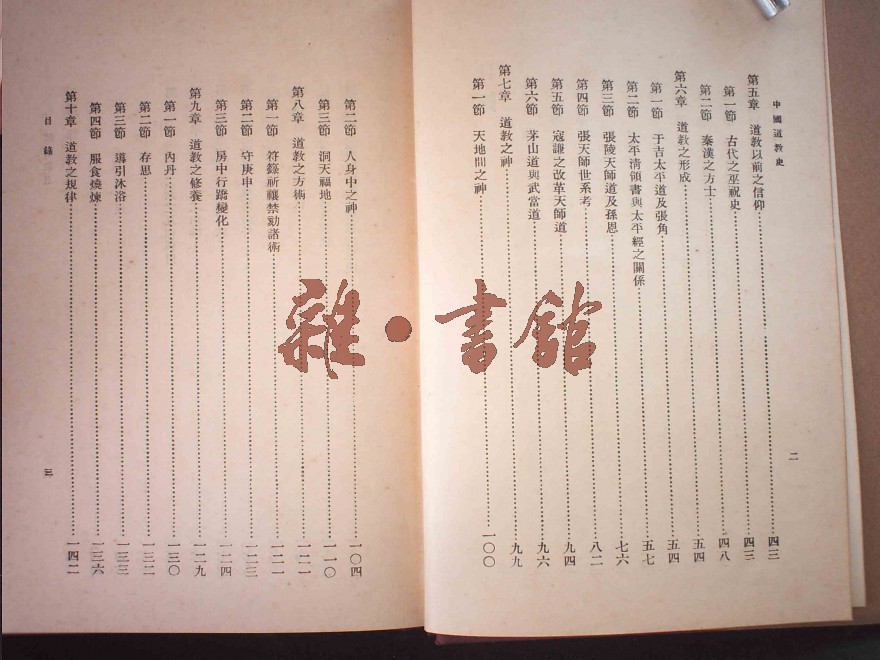 中國道教史
第五章 道教以前之信仰……四三
第一節 古代之巫祝史……四三
第二節 秦漢之方士……四八
第六章 道教之形成……五四
第一節 于吉太平道及張角……五四
第二節 太平清領書與太平經之關係……五七
第三節 張陵天師道及孫恩……七六
第四節 張天師世系考……八二
第五節 寇謙之改革天師道……九四
第六節 茅山道與武當道……九六
第七章 道教之神……九九
第一節 天地間之神……一〇〇
二
第二節 人身中之神……一〇四
第三節 洞天福地……一一〇
第八章 道教之方術……一二一
第一節 符籙祈禳禁劾諸術……一二一
第二節 守庚申……一二三
第三節 房中行蹻變化……一二四
第九章 道教之修養……一二九
第一節 內丹……一三〇
第二節 存思……一三二
第三節 導引沐浴……一三三
第四節 服食燒煉……一三六
第十章 道教之規律……一四二
目錄
三
雜·書館